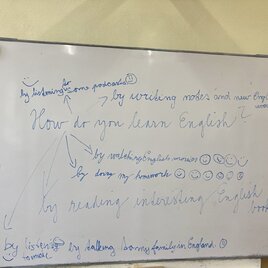 by listening to some podcasts
by writing notes and new Engl
How do you learn English?
by watching English movies
by doing my homework
by reading interesting English
book
by listen
to music
by talking to my family in England.